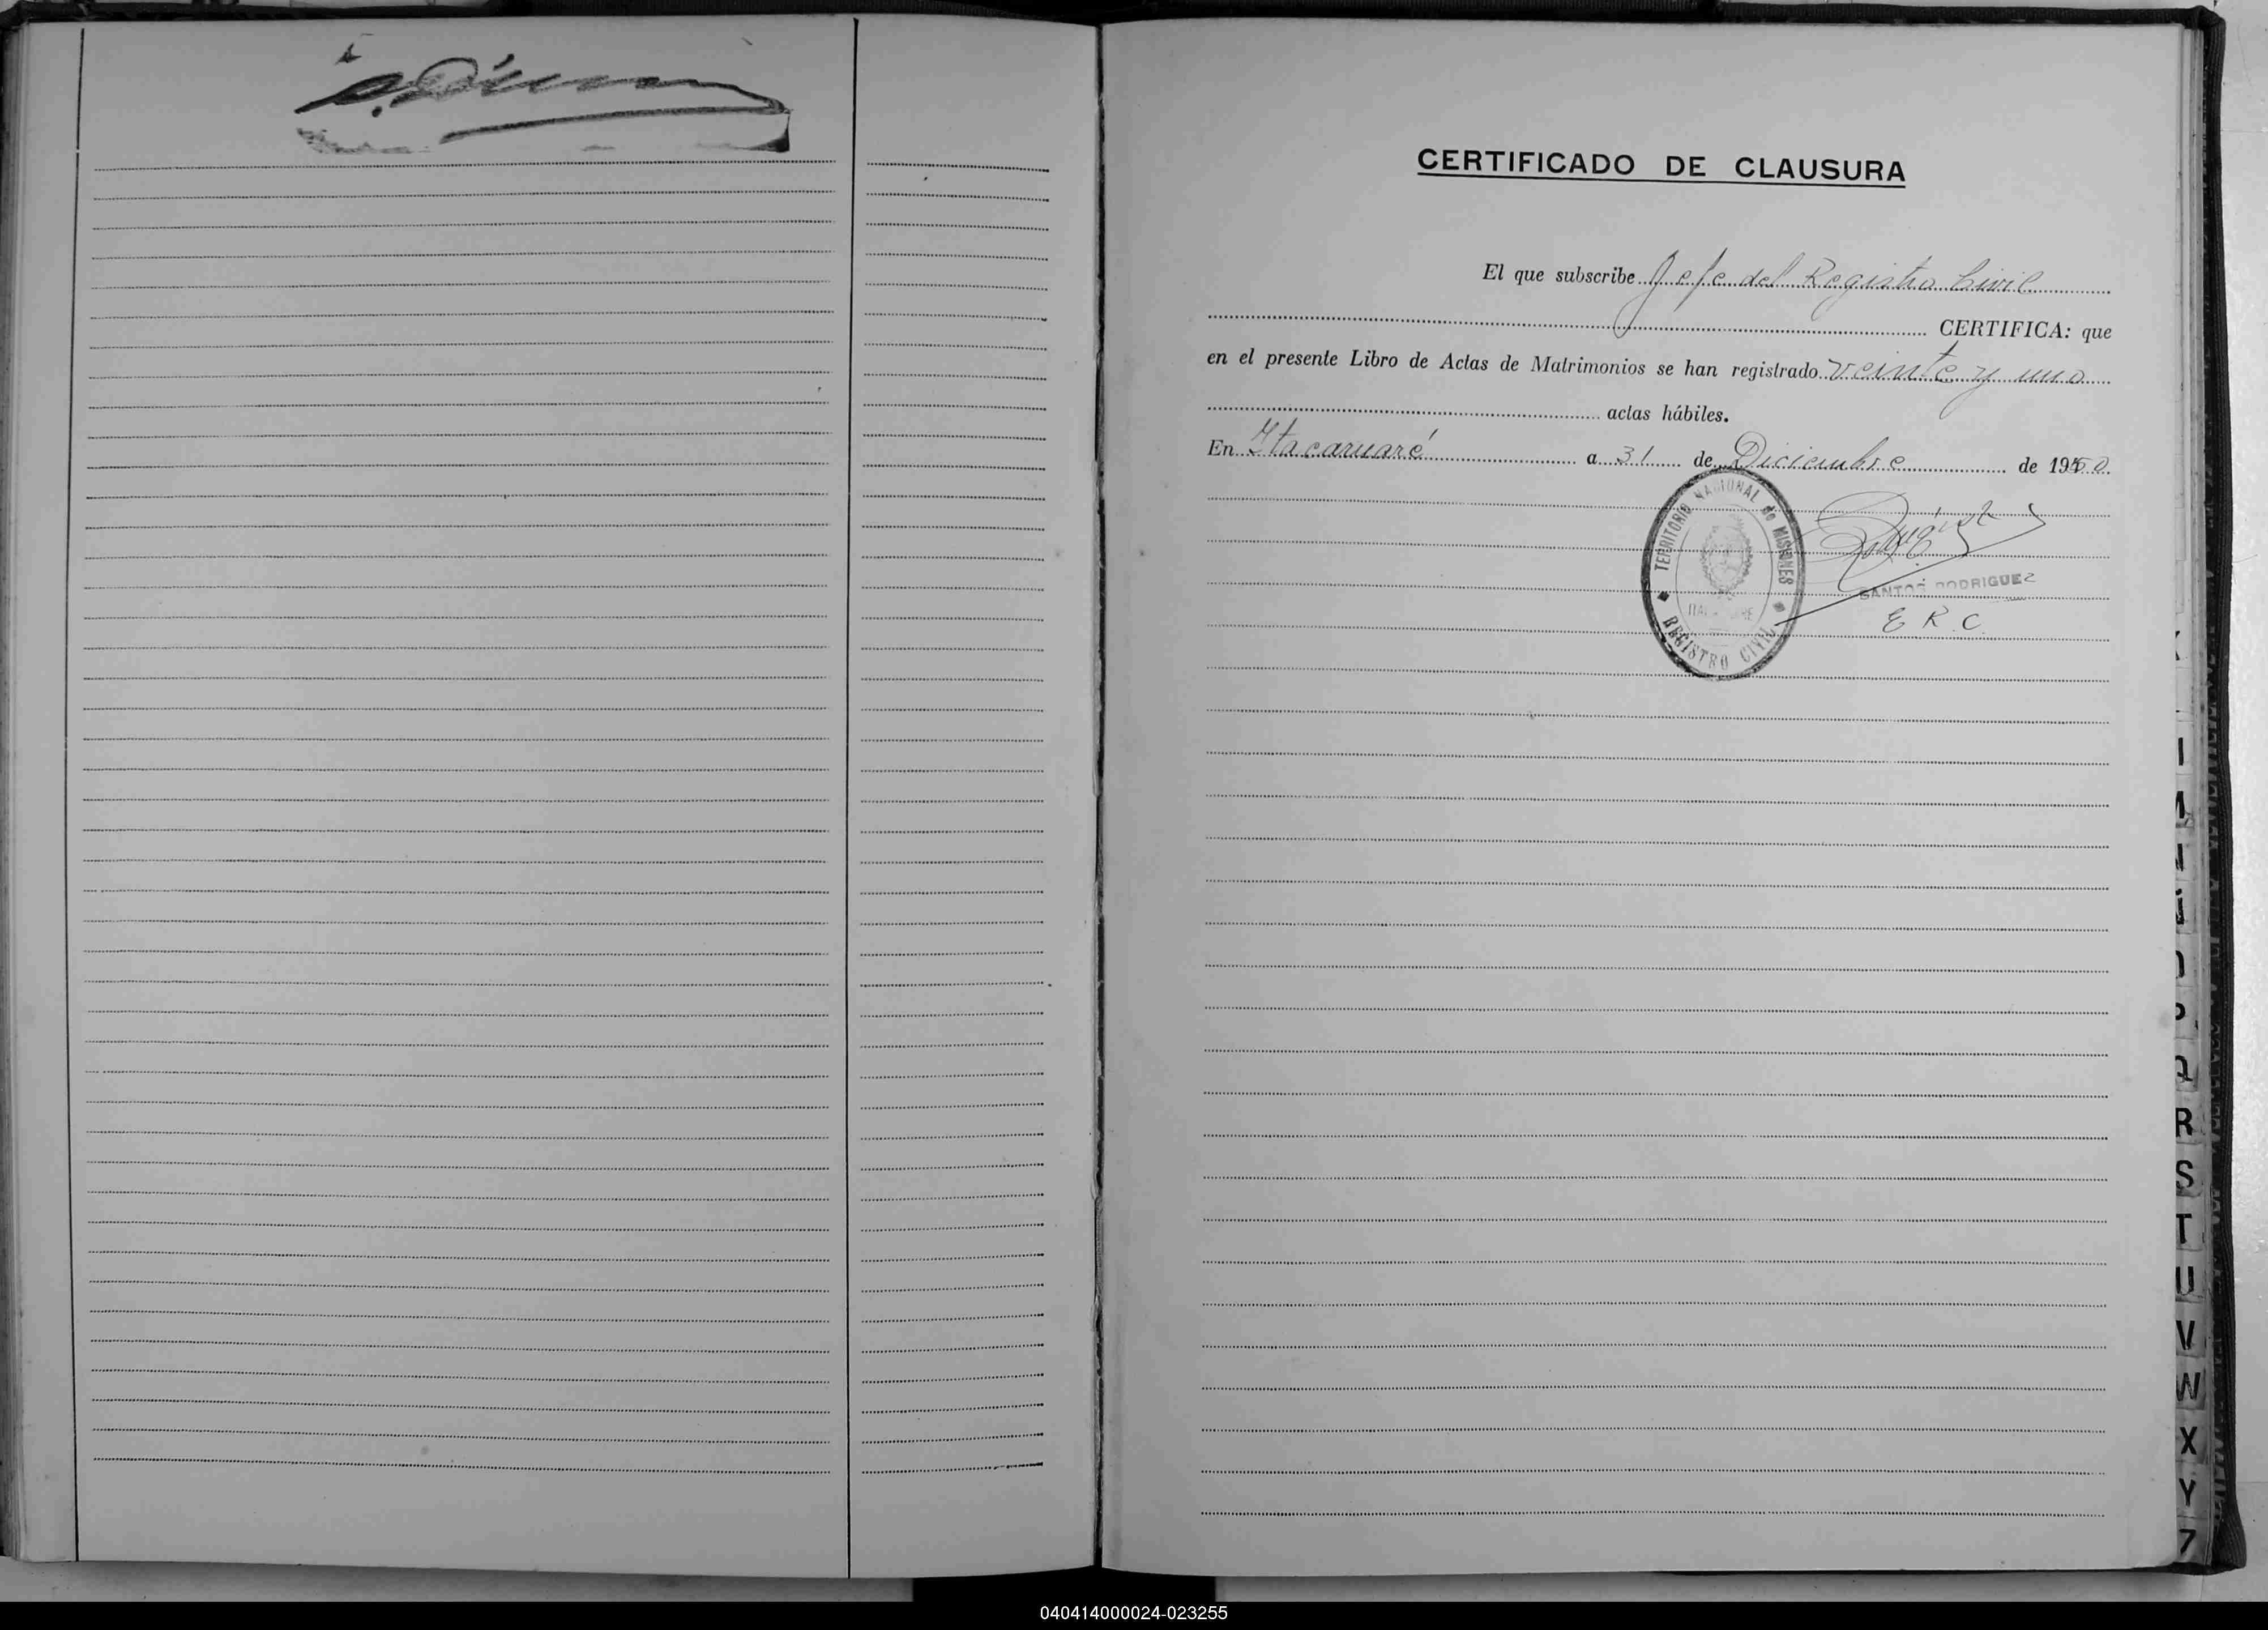 CERTIFICADO DE CLAUSURA
El que subscribe Jefe del Registro Civil
CERTIFICA: que
en el presente Libro de Actas de Matrimonios se han registrado veinte y uno
actas hábiles.
En Itacaruaré a 31 de Diciembre de 1950
TERRITORIO NACIONAL de MISIONES
REGISTRO CIVIL
SANTOS RODRIGUEZ
E. R. C.
R
S
T
U
V
W
X
Y
040414000024-023255